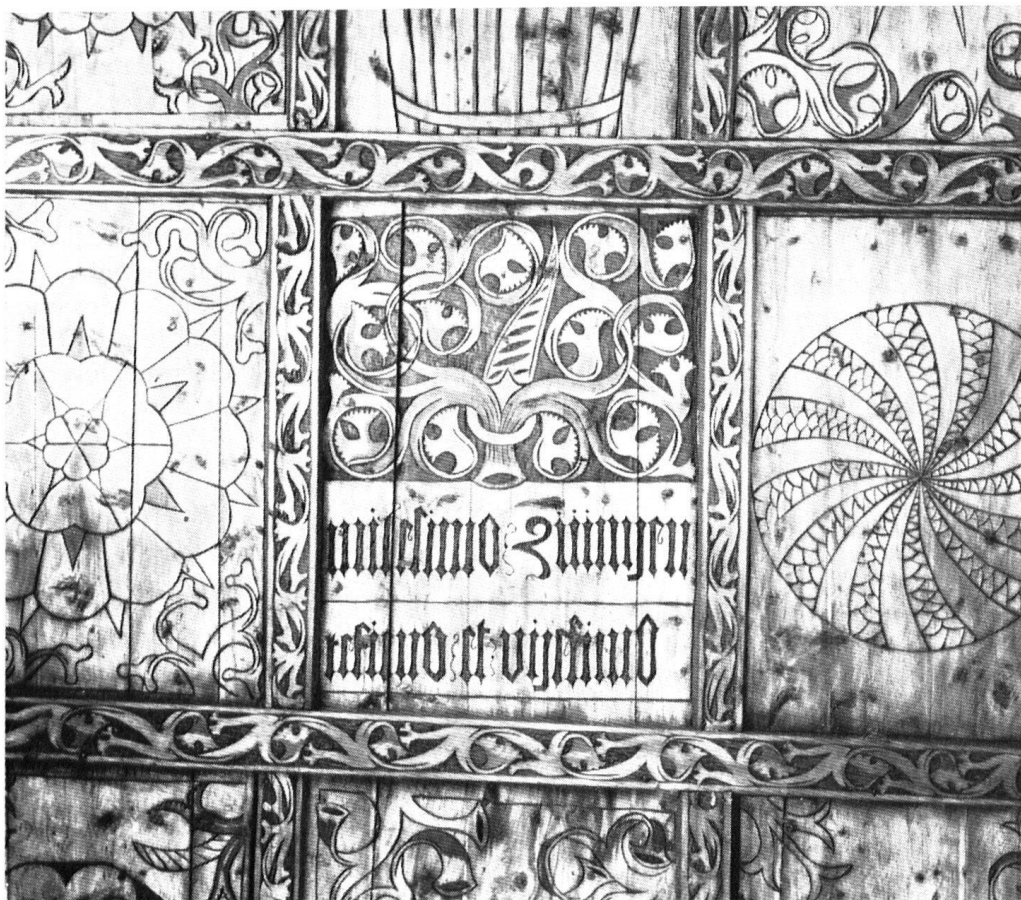 millesimo quingen
tesimo et vigesimo